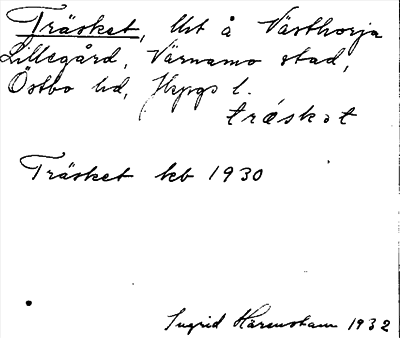 Träsket, lht å Västhorja
Lillegård, Värnamo stad,
Östbo hd, Jkpgs l.
træskət
Träsket kb 1930
Ingrid Härenstam 1932